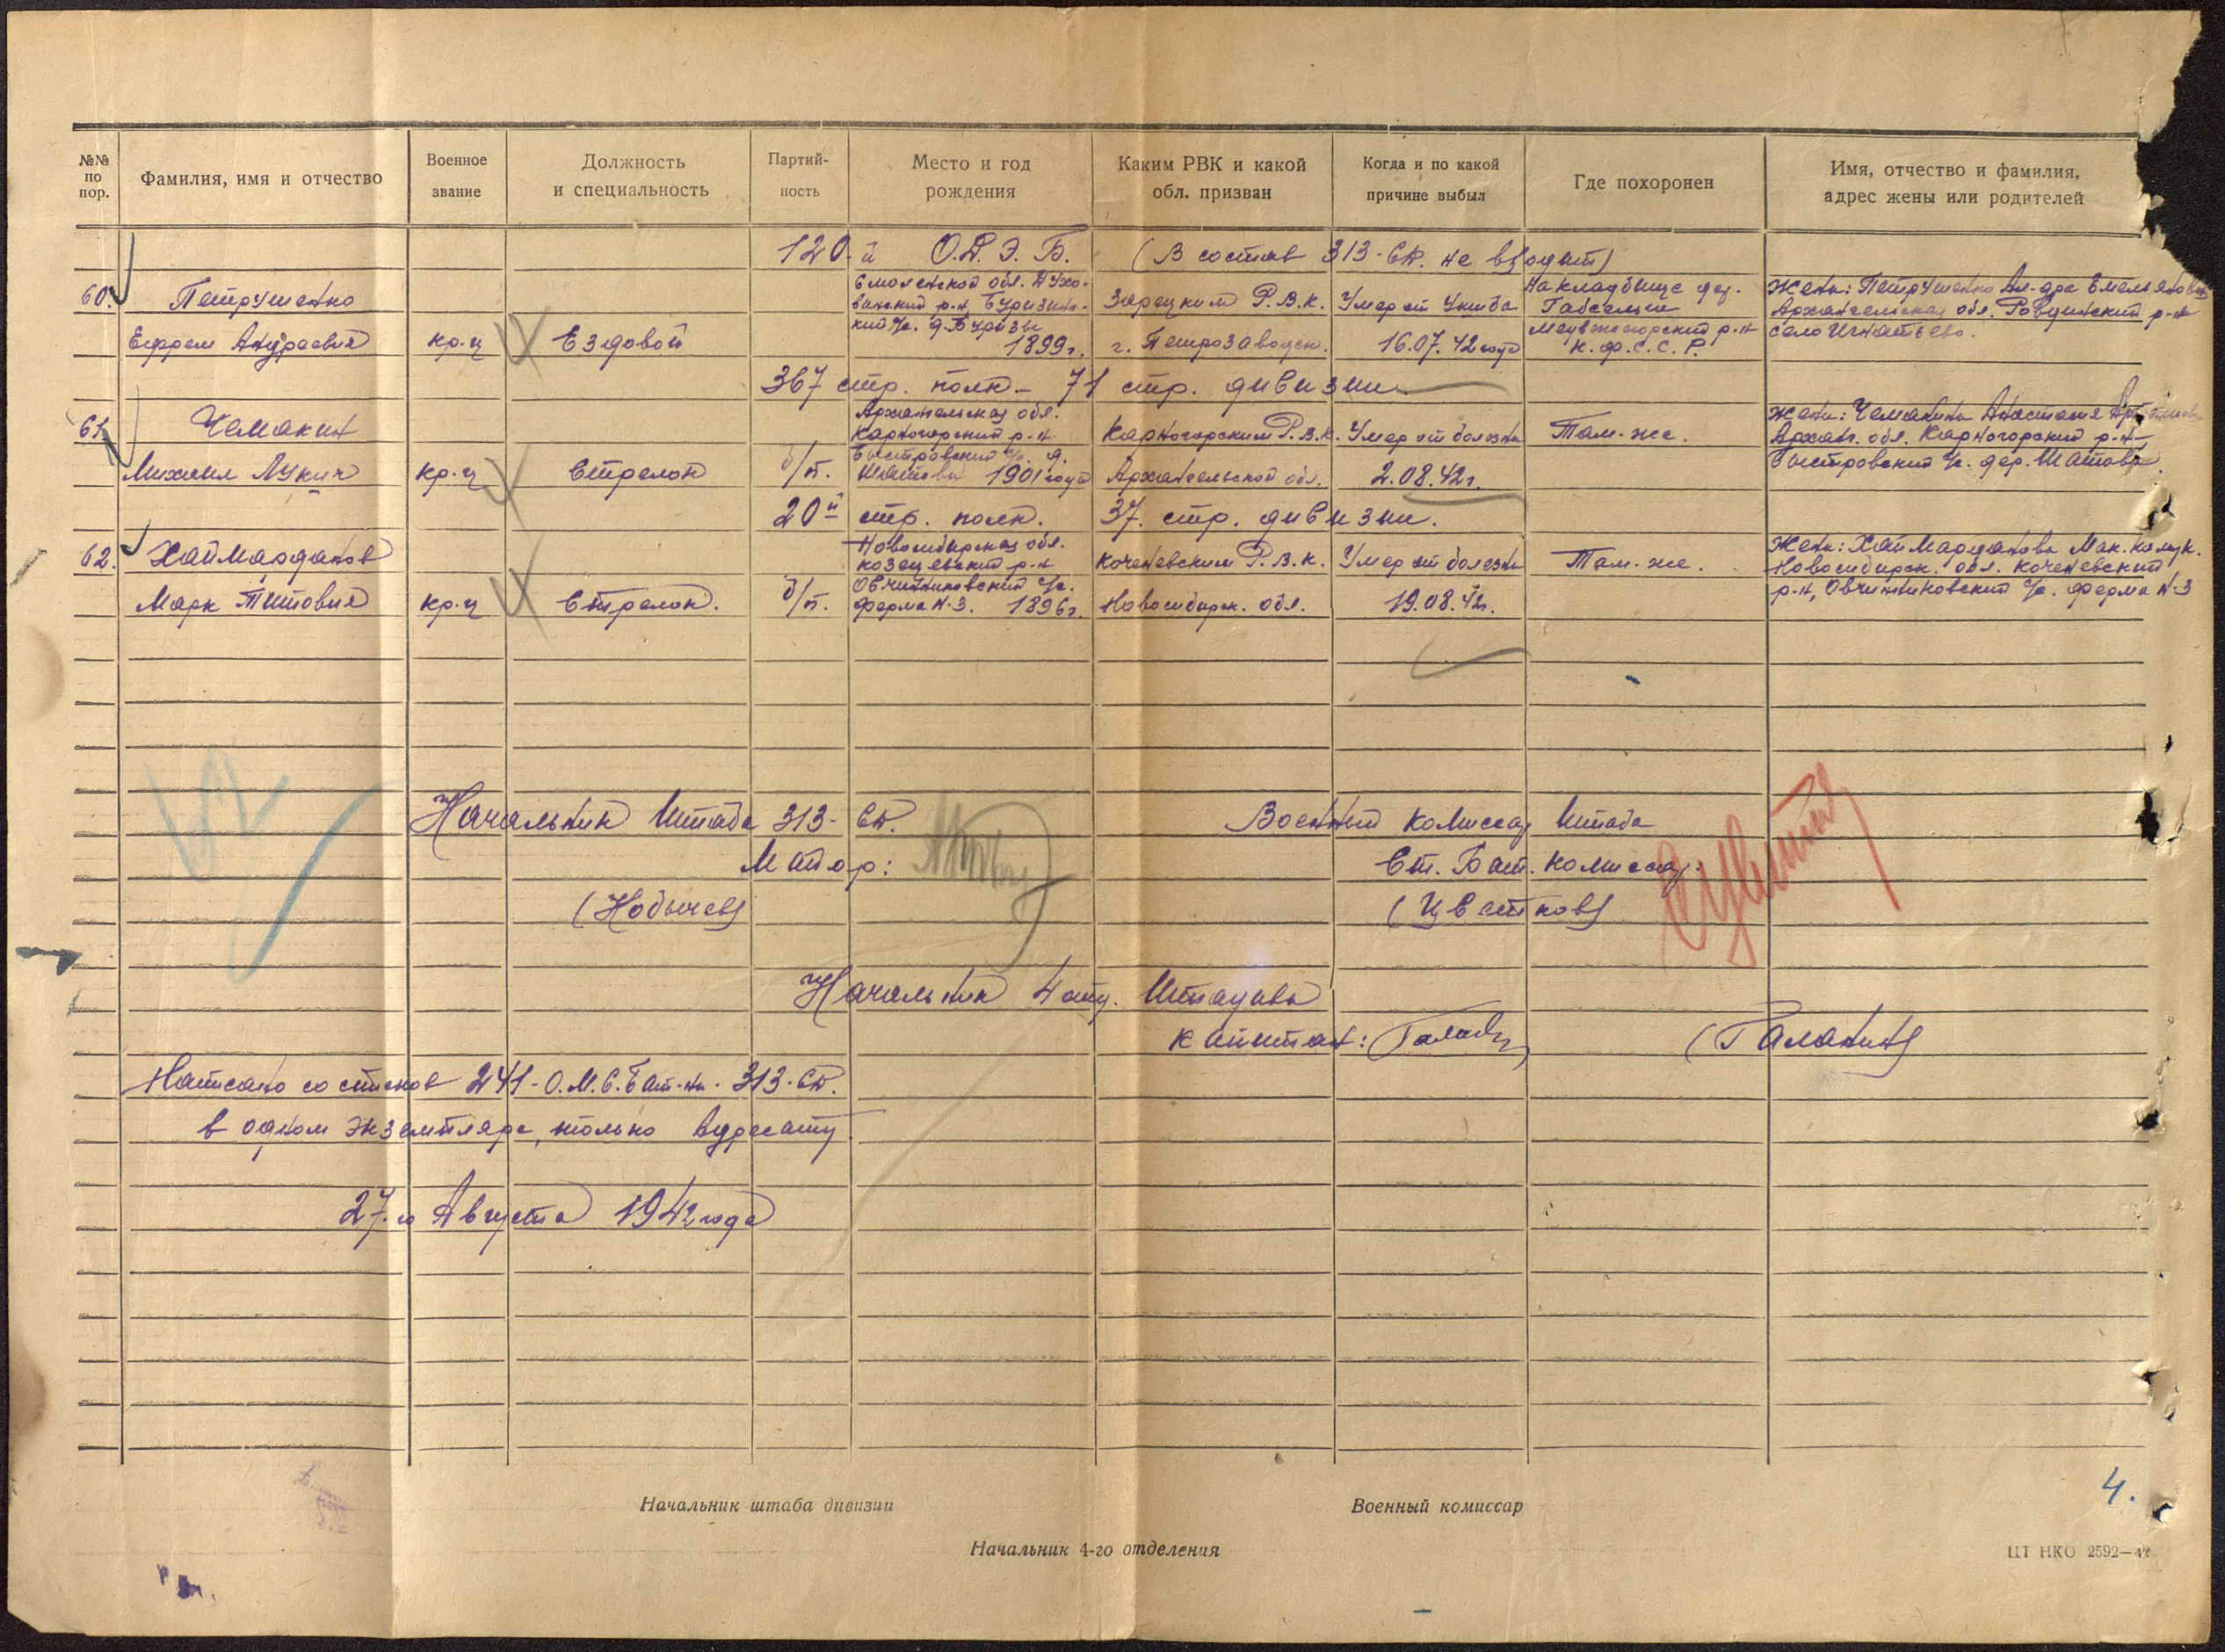 №№ по пор.
Фамилия, имя и отчество
Военное звание
Должность и специальность
Партий-ность
Место и год рождения
Каким РВК и какой обл. призван
Когда и по какой причине выбыл
Где похоронен
Имя, отчество и фамилия, адрес жены или родителей
120-й О.Д.Э.Б. (В состав 313-СД. не входит)
60. Петрушенко
Ефрем Андреевич
кр-ц
Ездовой
Смоленской обл.
р-н
1899г.
Зарецким Р.В.К.
г. Петрозаводск.
Умер от
16.07.42 года
На кладбище дер.
Габсельги
Медвежегорский р-н
К.Ф.С.С.Р.
Жена: Петрушенко Ал-дра Емельяновна
Архангельская обл. р-н
село Игнатьево.
367 стр. полк - 71 стр. дивизии
61. Чемакин
Михаил Лукич
кр-ц
Стрелок
б/п.
Архангельская обл.
Карпогорский р-н
Быстровский с/с. д.
Шатово 1901 года
Карпогорским Р.В.К.
Архангельской обл.
Умер от болезни
2.08.42г.
Там-же.
Жена: Чемакина Анастасия
Арханг. обл. Карпогорский р-н
Быстровский с/с. дер. Шатово.
20й стр. полк. 37. стр. дивизии.
62. Хаймарданов
Марк Титович
кр-ц
Стрелок.
б/п.
Новосибирская обл.
р-н
Овчинниковский с/с.
ферма N-3. 1896г.
Коченевским Р.В.К.
Новосибирск. обл.
Умер от болезни
19.08.42г.
Там-же.
Жена: Хаймарданова
Новосибирск. обл. Коченевский
р-н, Овчинниковский с/с. ферма N-3
Начальник Штаба 313-СД.
Майор:
(Кобычев)
Военный Комиссар Штаба
Ст. Бат. Комиссар:
(Цветков)
Начальник 4 отд. Штадива
Капитан: (Галанин)
Написано со списков 241-О.М.С.Бат-на. 313-СД.
в одном экземпляре, только Адресату
27-го Августа 1942 года
Начальник штаба дивизии
Военный комиссар
Начальник 4-го отделения
4.
ЦТ НКО 2592—42